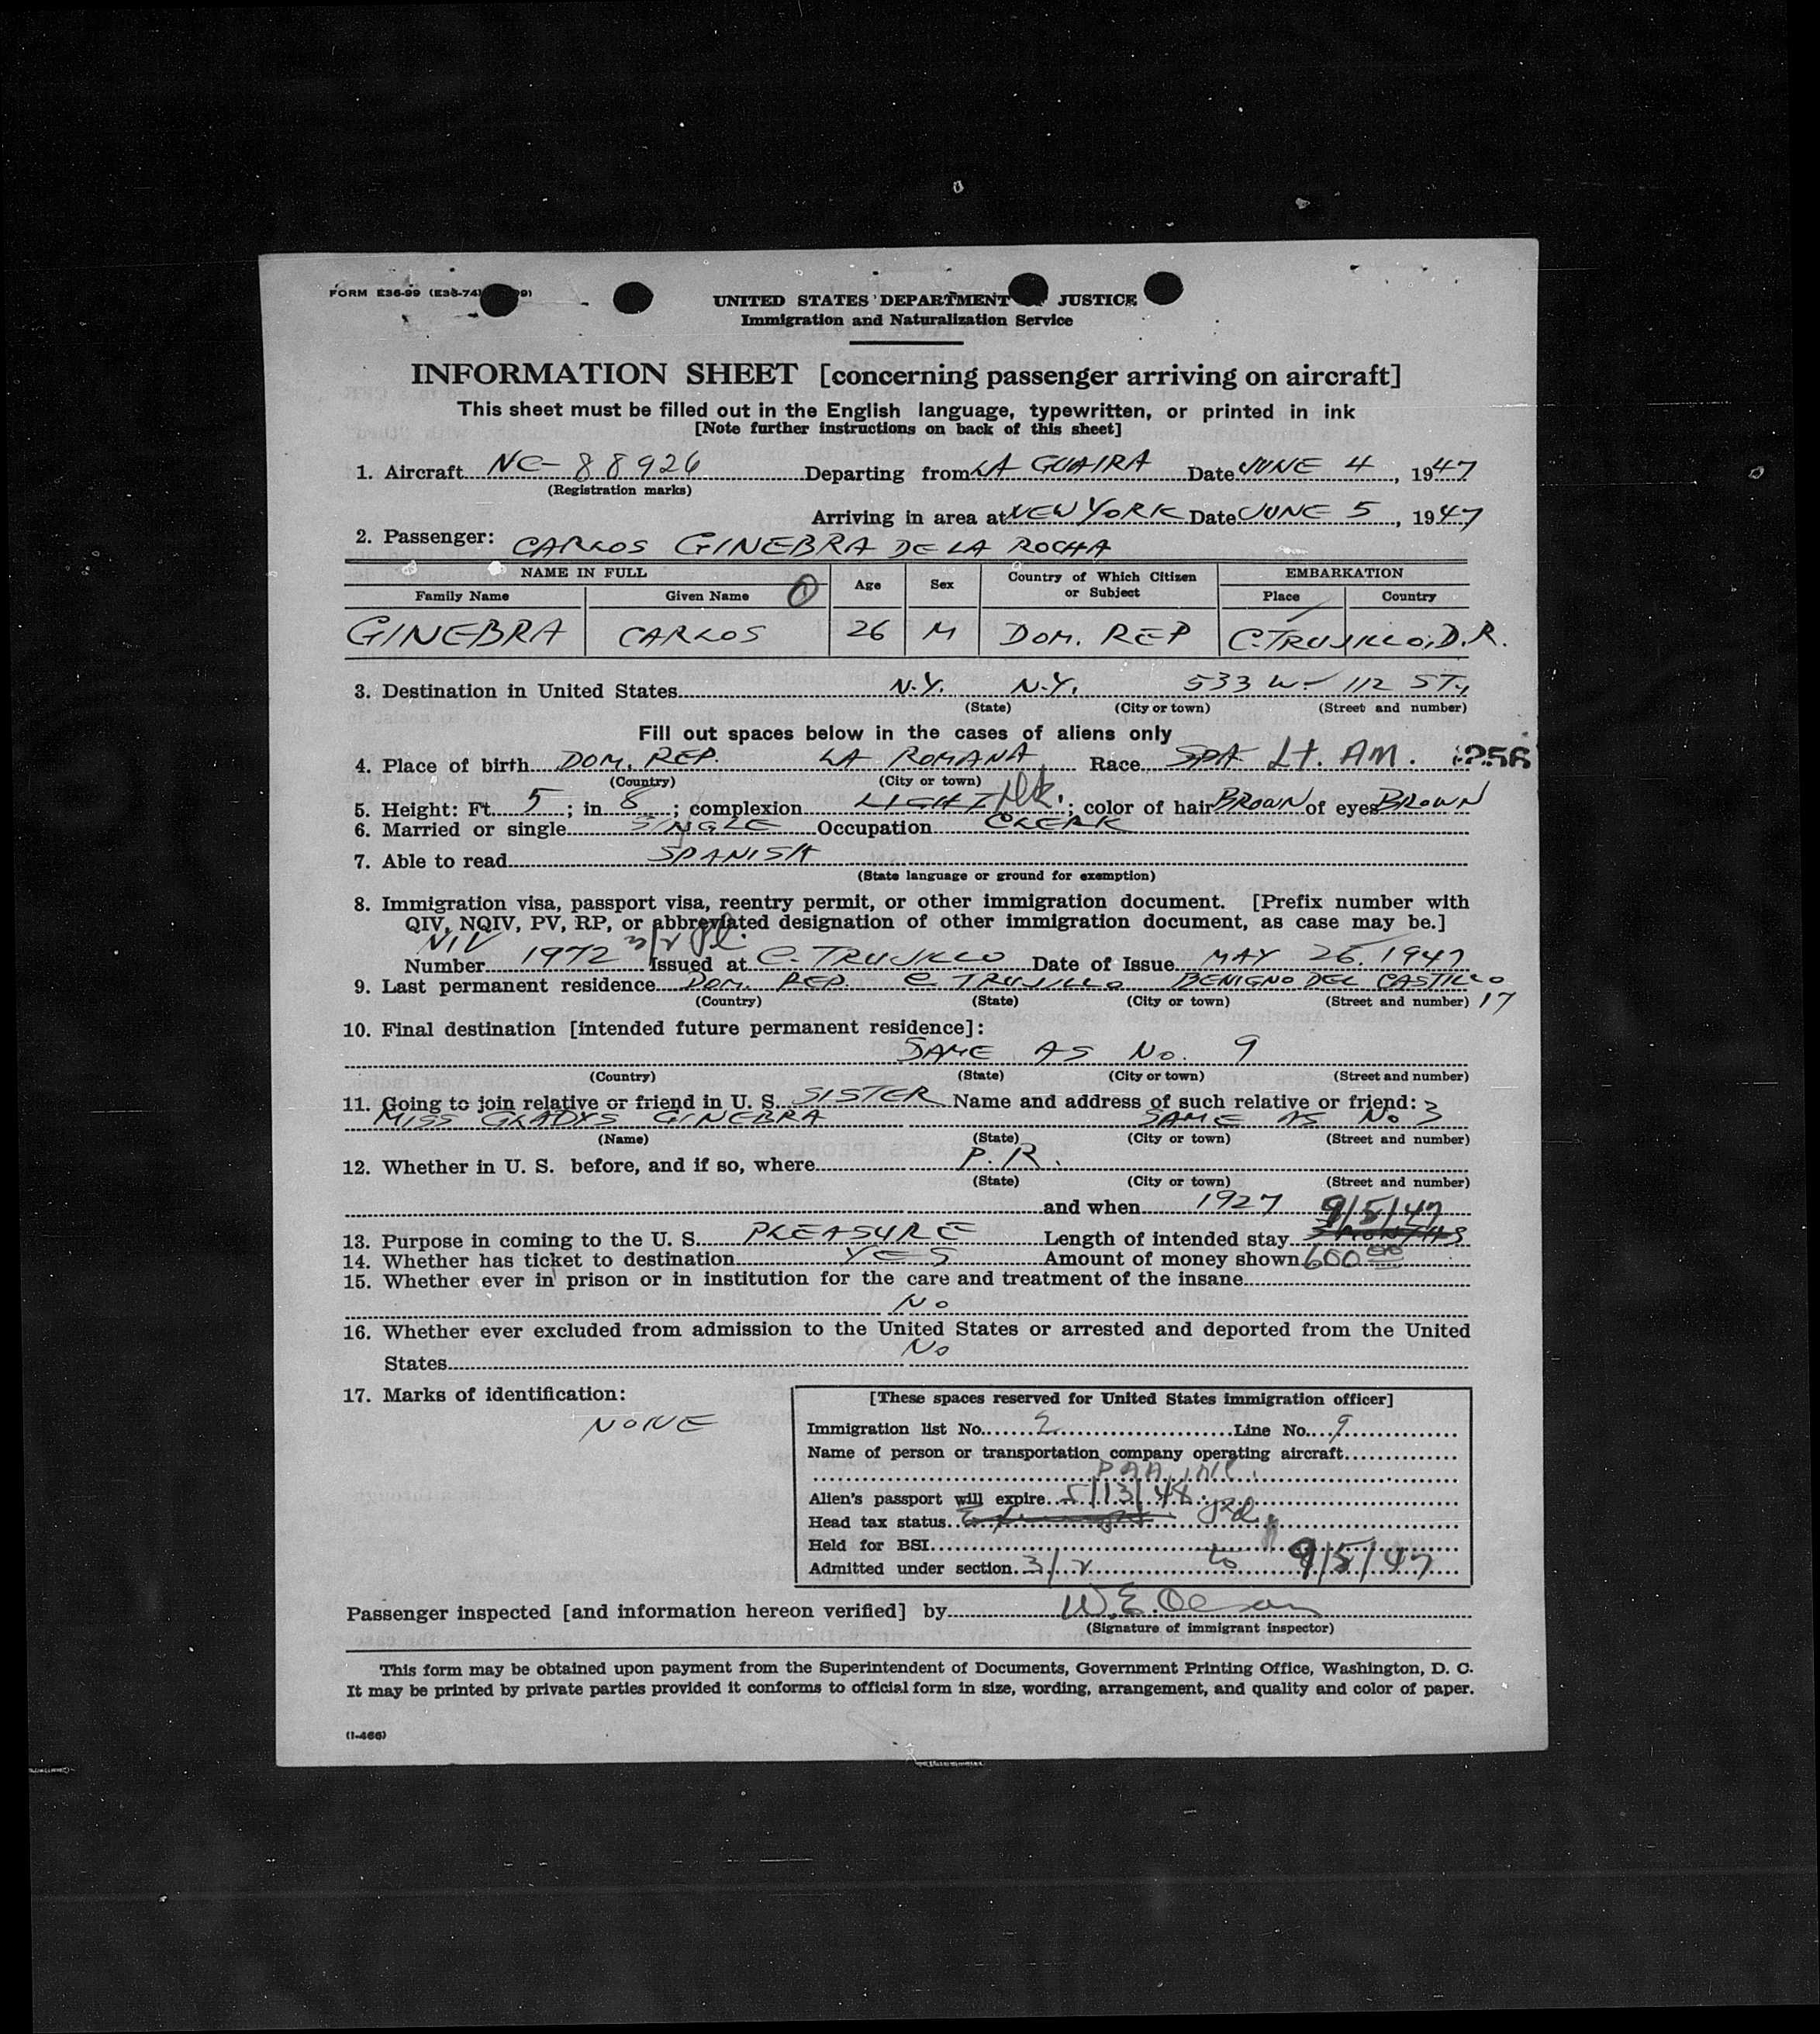 FORM E36-99 (E36-74)
UNITED STATES DEPARTMENT JUSTICE
Immigration and Naturalization Service
INFORMATION SHEET [concerning passenger arriving on aircraft]
This sheet must be filled out in the English language, typewritten, or printed in ink
[Note further instructions on back of this sheet]
1. Aircraft NC-88926 Departing from LA GUAIRA Date JUNE 4, 1947
(Registration marks)
Arriving in area at NEW YORK Date JUNE 5, 1947
2. Passenger: CARLOS GINEBRA DE LA ROCHA
NAME IN FULL Age Sex Country of Which Citizen or Subject EMBARKATION
Family Name Given Name Place Country
GINEBRA CARLOS 26 M DOM. REP C. TRUJILLO, D.R.
3. Destination in United States N.Y. N.Y. 533 W- 112 ST,
(State) (City or town) (Street and number)
Fill out spaces below in the cases of aliens only
4. Place of birth DOM. REP. LA ROMANA Race SPA Lt. AM. 256
(Country) (City or town)
5. Height: Ft. 5; in 8; complexion LIGHT dk.; color of hair BROWN of eyes BROWN
6. Married or single SINGLE Occupation CLERK
7. Able to read SPANISH
(State language or ground for exemption)
8. Immigration visa, passport visa, reentry permit, or other immigration document. [Prefix number with
QIV, NQIV, PV, RP, or abbreviated designation of other immigration document, as case may be.]
NIV 3/2
Number 1972 Issued at C. TRUJILLO Date of Issue MAY 26. 1947
9. Last permanent residence DOM. REP. C. TRUJILLO BENIGNO DEL CASTILLO
(Country) (State) (City or town) (Street and number) 17
10. Final destination [intended future permanent residence]:
SAME AS No. 9
(Country) (State) (City or town) (Street and number)
11. Going to join relative or friend in U. S. SISTER Name and address of such relative or friend:
MISS GLADYS GINEBRA SAME AS No 3
(Name) (State) (City or town) (Street and number)
12. Whether in U. S. before, and if so, where P. R.
(State) (City or town) (Street and number)
and when 1927 9/5/47
13. Purpose in coming to the U. S. PLEASURE Length of intended stay 3 MONTHS
14. Whether has ticket to destination YES Amount of money shown 600 00
15. Whether ever in prison or in institution for the care and treatment of the insane
No
16. Whether ever excluded from admission to the United States or arrested and deported from the United
States No
17. Marks of identification:
NONE
[These spaces reserved for United States immigration officer]
Immigration list No. 2 Line No. 9
Name of person or transportation company operating aircraft
PAA, INC.
Alien's passport will expire 5/13/48
Head tax status
Held for BSI
Admitted under section 3/2 to 9/5/47
Passenger inspected [and information hereon verified] by W.E. Olson
(Signature of immigrant inspector)
This form may be obtained upon payment from the Superintendent of Documents, Government Printing Office, Washington, D. C.
It may be printed by private parties provided it conforms to official form in size, wording, arrangement, and quality and color of paper.
(I-466)